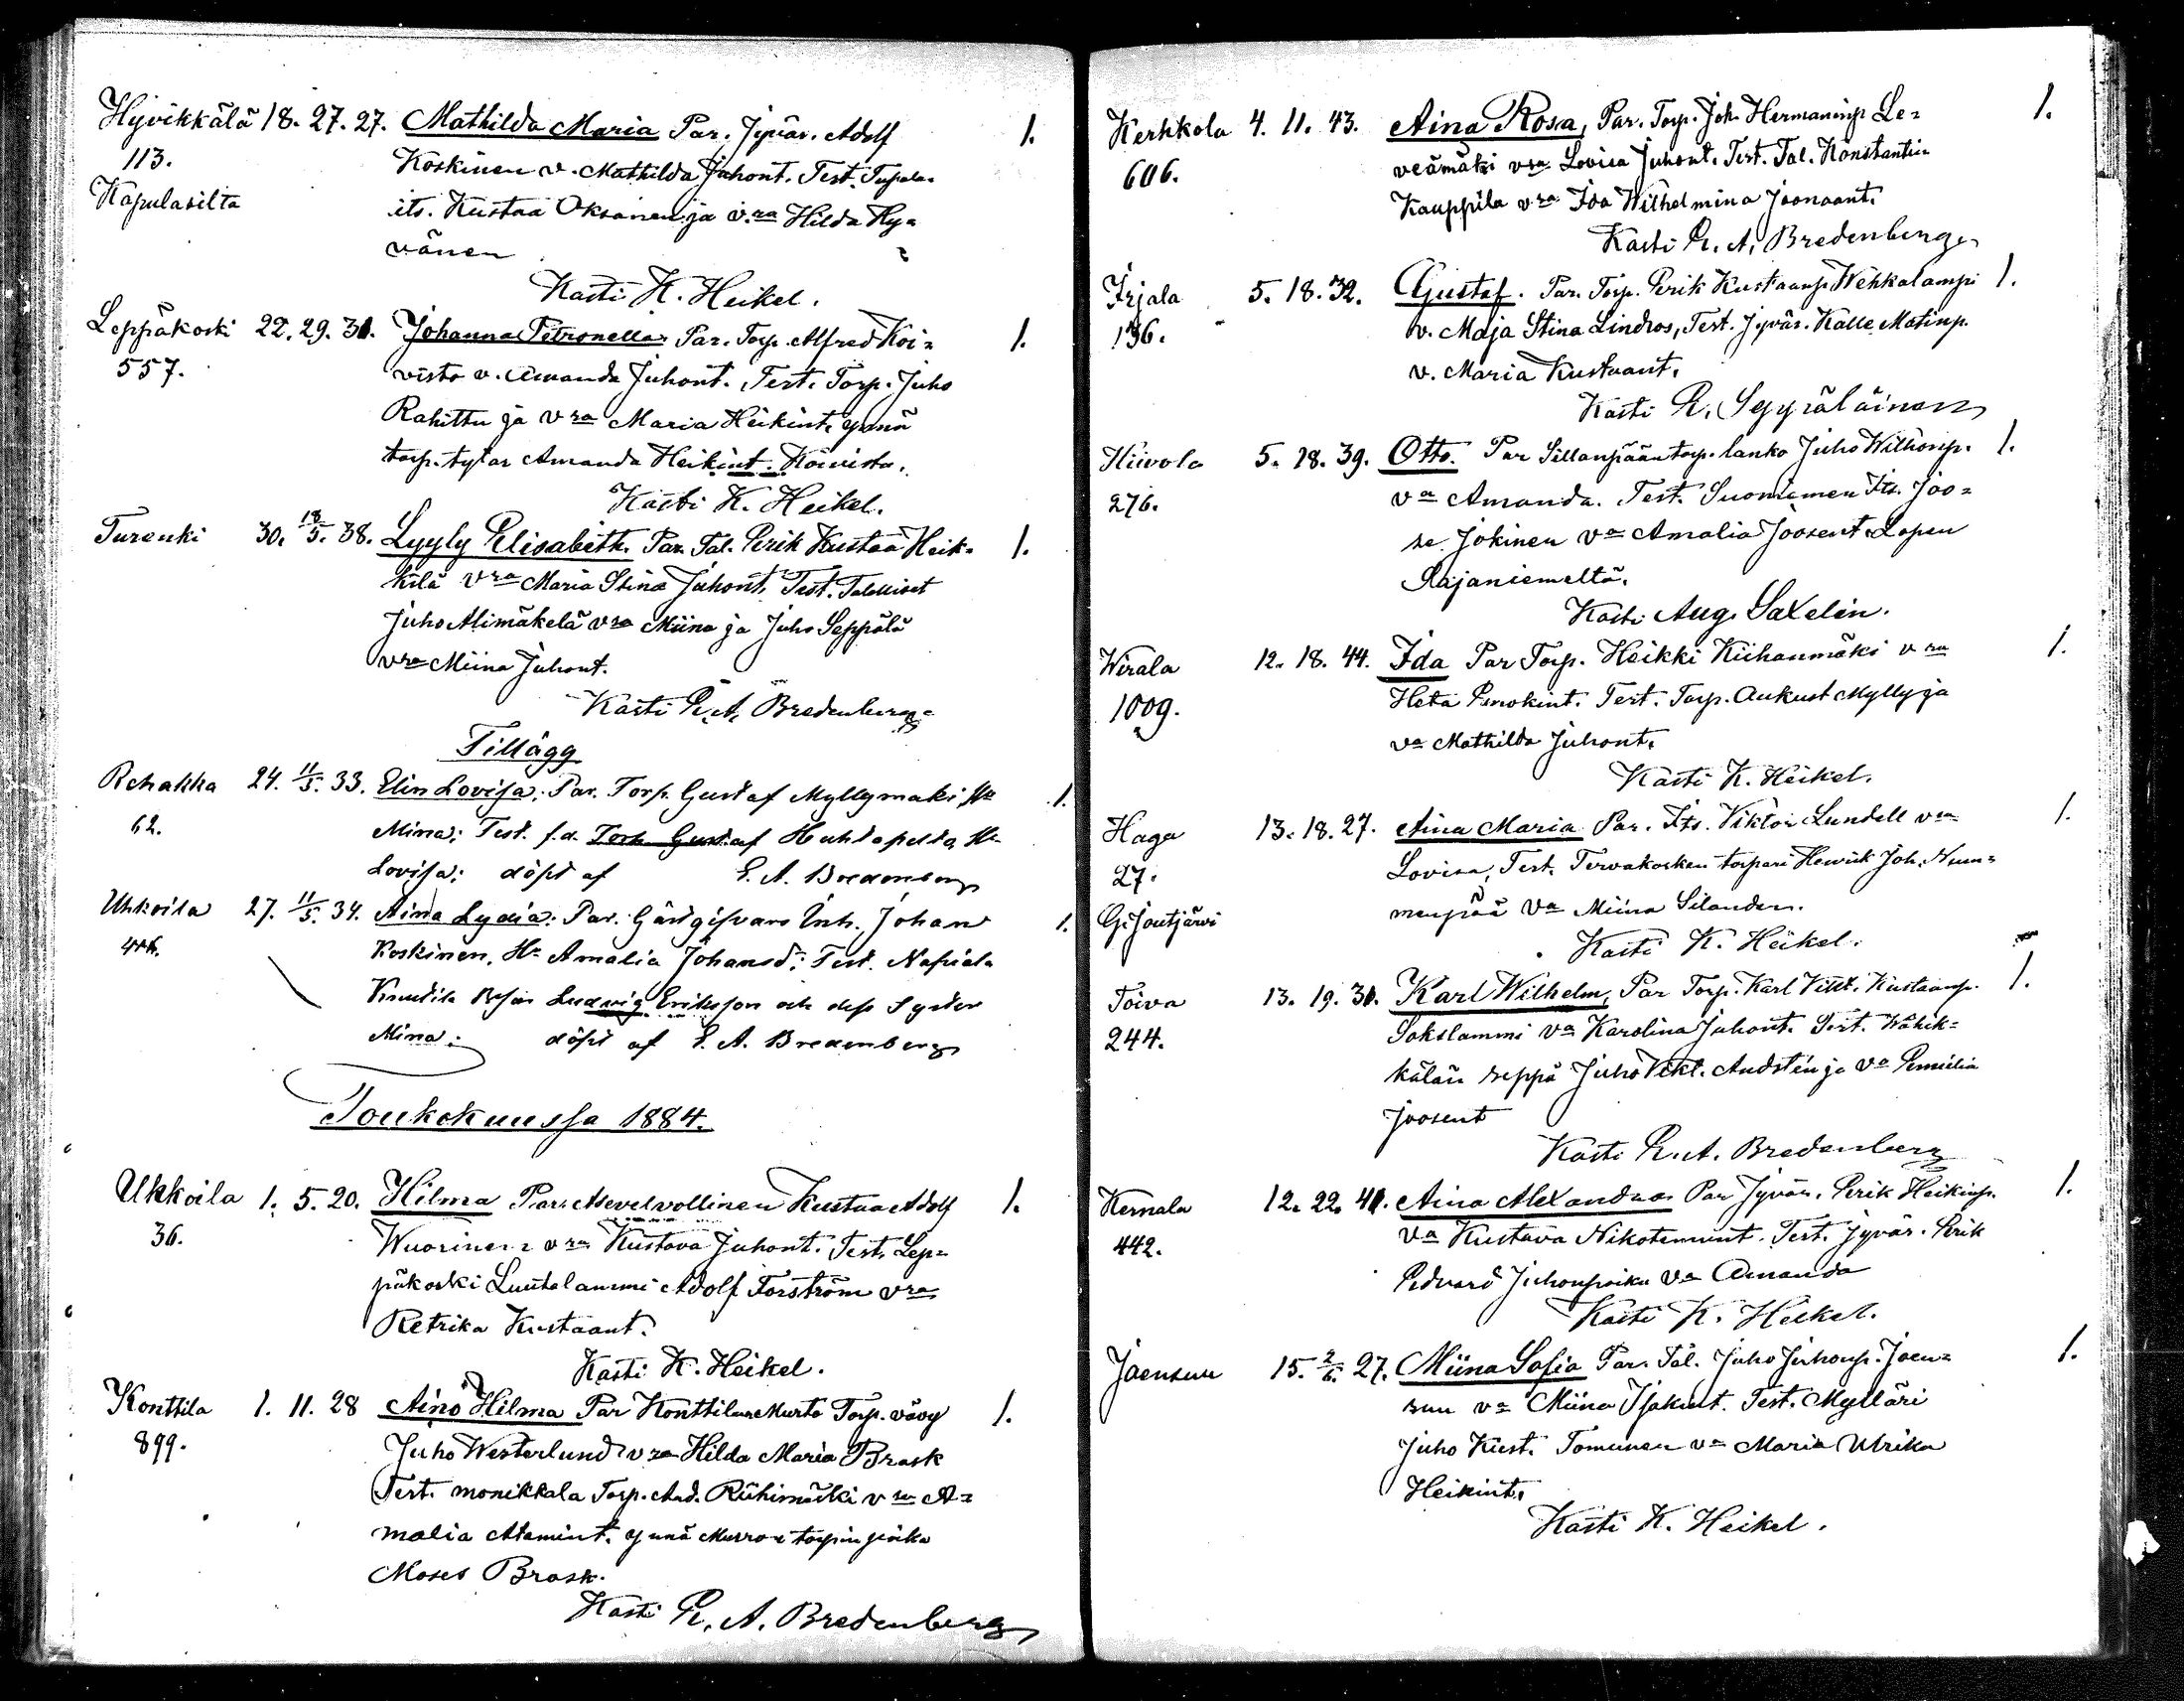 Hyvikkälä 18. 27. 27. Mathilda Maria Par. Jyvär. Adolf 1.
113. Koskinen v. Mathilda Juhont. Test. Tupala-
Kapulasilta its. Kustaa Oksanen ja v.ra Hilda Hy-
vänen
Kasti K. Heikel.
Leppäkoski 22. 29. 31. Johanna Petronella Par. Torp. Alfred Koi- 1.
557. visto v. Amanda Juhont. Test. Torp. Juho
Rahittu ja vra Maria Heikint. ynnä
torp. tytär Amanda Heikint. Koivisto.
Kasti K. Heikel.
Turenki 30. 18/5. 38. Lyyly Elisabeth. Par. Tal. Erik Kustaa Heik- 1.
kilä vra Maria Stina Juhont. Test. Talolliset
Juho Alimäkelä vra Miina ja Juho Seppälä
vra Miina Juhont.
Kasti E. A. Bredenberg
Tillägg
Rehakka 24. 11/5. 33. Elin Lovisa: Par. Torp. Gustaf Myllymaki Ha 1.
62. Mina; Test. f.d. Torp Gustaf Huhtapelto, Ha
Lovisa; döpt af E. A. Bredenberg
Uhkoila 27. 11/5. 34. Aina Lydia: Par. Gästgifvare Inh. Johan 1.
Koskinen, Ha Amalia Johansd; Test. Napiala
Knuutila Ludvig Eriksson och dess Syster
Mina; döpt af E. A. Bredenberg
Toukokuussa 1884.
Ukkoila 1. 5. 20. Hilma Par. Asevelvollinen Kustaa Adolf 1.
36. Wuorinen vra Kustava Juhont. Test. Lep-
päkoski Luutalammi Adolf Forström vra
Retrika Kustaant.
Kasti K. Heikel.
Konttila 1. 11. 28 Aino Hilma Par Konttilan Murto Torp. vävy 1.
899. Juho Westerlund vra Hilda Maria Brask
Test. monikkala Torp. And. Riihimäki vra A-
malia Atamint. ynnä Murron torpin poika
Moses Brask.
Kasti E. A. Bredenberg
Kerkkola 4. 11. 43. Aina Rosa, Par. Torp. Joh. Hermaninp. Le- 1.
606. veämäki vra Lovisa Juhont. Test. Tal. Konstantin
Kauppila vra Ida Wilhelmina Joonaant.
Kasti E. A. Bredenberg
Irjala 5. 18. 32. Gustaf. Par. Torp. Erik Kustaanp. Wehkalampi 1.
136. v. Maja Stina Lindros, Test. Jyvär. Kalle Matinp.
v. Maria Kustaant.
Kasti E. Syyräläinen
Hiivola 5. 18. 39. Otto. Par Sillanpään torp. lanko Juho Wilhomp. 1.
276. va Amanda. Test. Suoniemen Its. Joo-
se Jokinen va Amalia Joosent. Lopen
Rajaniemeltä.
Kasti Aug. Saxelin.
Wirala 12. 18. 44. Ida Par Torp. Heikki Kiihanmäki vra 1.
1009. Heta Enokint. Test. Torp. Aukust Mylly ja
va Mathilda Juhont.
Kasti K. Heikel.
Haga 13. 18. 27. Aina Maria Par. Its. Viktor Lundell vra 1.
27. Lovisa, Test. Tervakosken torpari Henrik Joh. Num-
G. Joutjärvi menpää va Miina Silander.
Kasti K. Heikel.
Toiva 13. 19. 31. Karl Wilhelm, Par Torp. Karl Vikt. Kustaanp. 1.
244. Sakslammi va Karolina Juhont. Test. Wähik-
kälän seppä Juho Vikt. Audstén ja va Emilia
Joosent
Kasti E. A. Bredenberg
Kernala 12. 22. 41. Aina Alexandra Par Jyvär. Erik Heikinp. 1.
442. va Kustava Nikotemunt. Test. Jyvär. Erik
Edvard Juhonpoika va Amanda
Kasti K. Heikel.
Joensuu 15. 2/6. 27. Miina Sofia Par. Tal. Juho Juhonp. Joen- 1.
suu va Miina Isakint. Test. Mylläri
Juho Kust. Tominen va Maria Ulrika
Heikint.
Kasti K. Heikel.